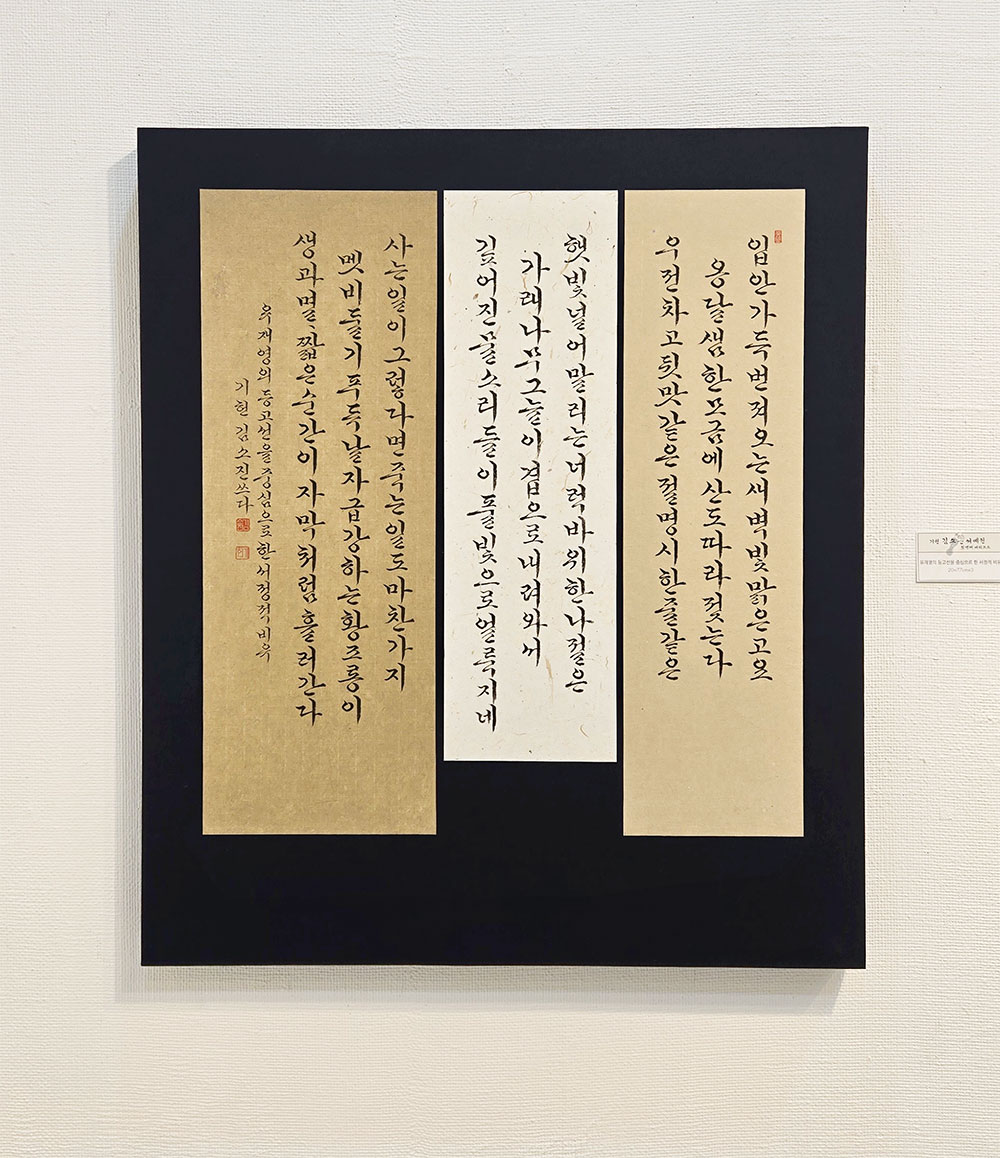 입안가득번져오는새벽빛맑은고요
옹달샘한모금에산도따라젖는다
우전차고뒷맛같은절명시한줄같은
햇빛널어말리는너럭바위한나절은
가래나무그늘이겹으로내려와서
깊어진물소리들이풀빛으로얼룩지네
사는일이그렇다면죽는일도마찬가지
멧비둘기푸두둑날자급강하는황조롱이
생과멸, 짧은순간이자막처럼흘러간다
유재영의등고선을중심으로한서정적비유
기헌김소진쓰다